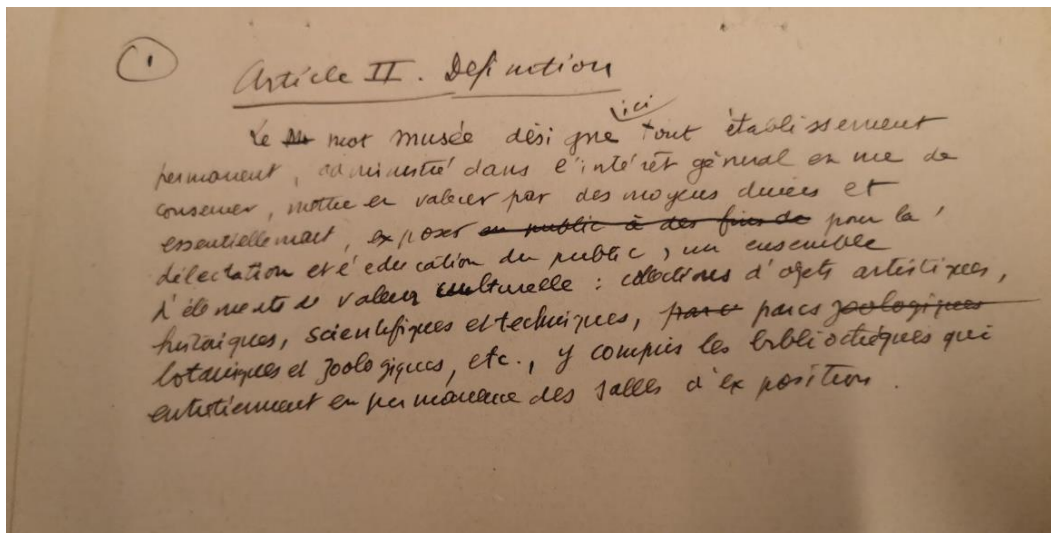 1
Article II. Definition
ici
Le mot musée désigne tout établissement
permanent, administré dans l'intérêt général en vue de
conserver, mettre en valeur par des moyens divers et
essentiellement, exposer en public à des fins de pour la
délectation et l'éducation du public, un ensemble
d'éléments de valeur culturelle : collections d'objets artistiques,
historiques, scientifiques et techniques, parc parcs zoologiques
botaniques et zoologiques, etc., y compris les bibliothèques qui
entretiennent en permanence des salles d'exposition.